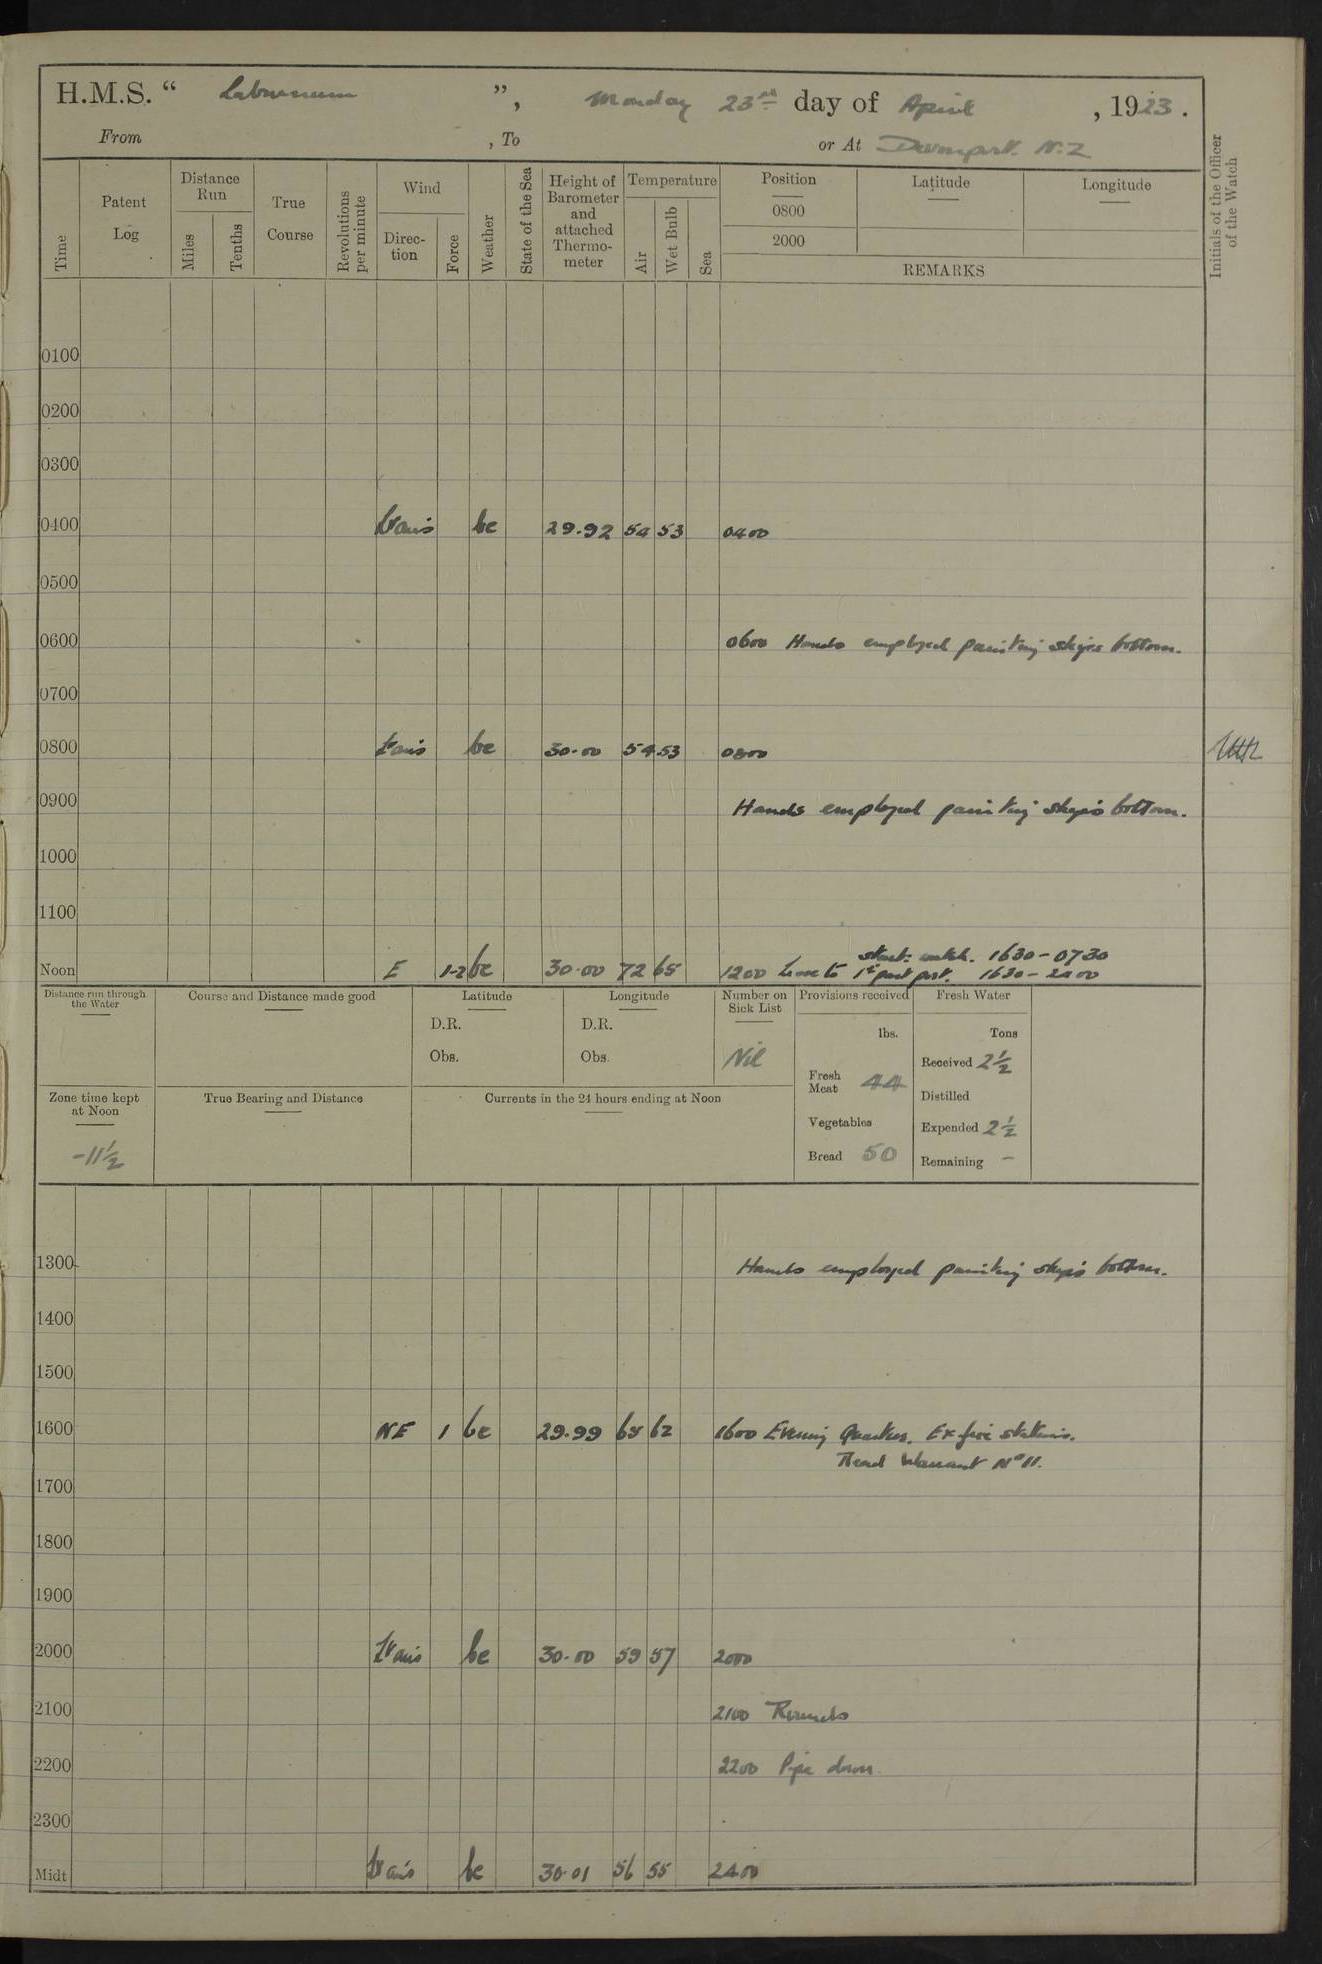 H.M.S. “ Laburnum ”, Monday 23rd day of April , 1923 .
From , To or At Devonport. N.Z
Time
Patent Log
Distance Run
Miles
Tenths
True Course
Revolutions per minute
Wind
Direc-tion
Force
Weather
State of the Sea
Height of Barometer and attached Thermo-meter
Temperature
Air
Wet Bulb
Sea
Position
0800
2000
Latitude
Longitude
REMARKS
Initials of the Officer of the Watch
0100
0200
0300
0400 Lt airs bc 29.92 54 53 0400
0500
0600 0600 Hands employed painting ship's bottom.
0700
0800 Lt airs bc 30.00 54 53 0800
0900 Hands employed painting ship's bottom.
1000
1100
starb: watch. 1630-0730
Noon E 1-2 bc 30.00 72 65 1200 Leave to 1st part port. 1630-2400
Distance run through the Water
Course and Distance made good
Latitude
D.R.
Obs.
Longitude
D.R.
Obs.
Number on Sick List
Nil
Provisions received
lbs.
Fresh Meat 44
Vegetables
Bread 50
Fresh Water
Tons
Received 2½
Distilled
Expended 2½
Remaining –
Zone time kept at Noon
-11½
True Bearing and Distance
Currents in the 24 hours ending at Noon
1300 Hands employed painting ship's bottom.
1400
1500
1600 NE 1 bc 29.99 65 62 1600 Evening Quarters. Ex fire stations.
Read Warrant No 11.
1700
1800
1900
2000 Lt airs bc 30.00 59 57 2000
2100 2100 Rounds
2200 2200 Pipe down
2300
Midt Lt airs bc 30.01 56 55 2400